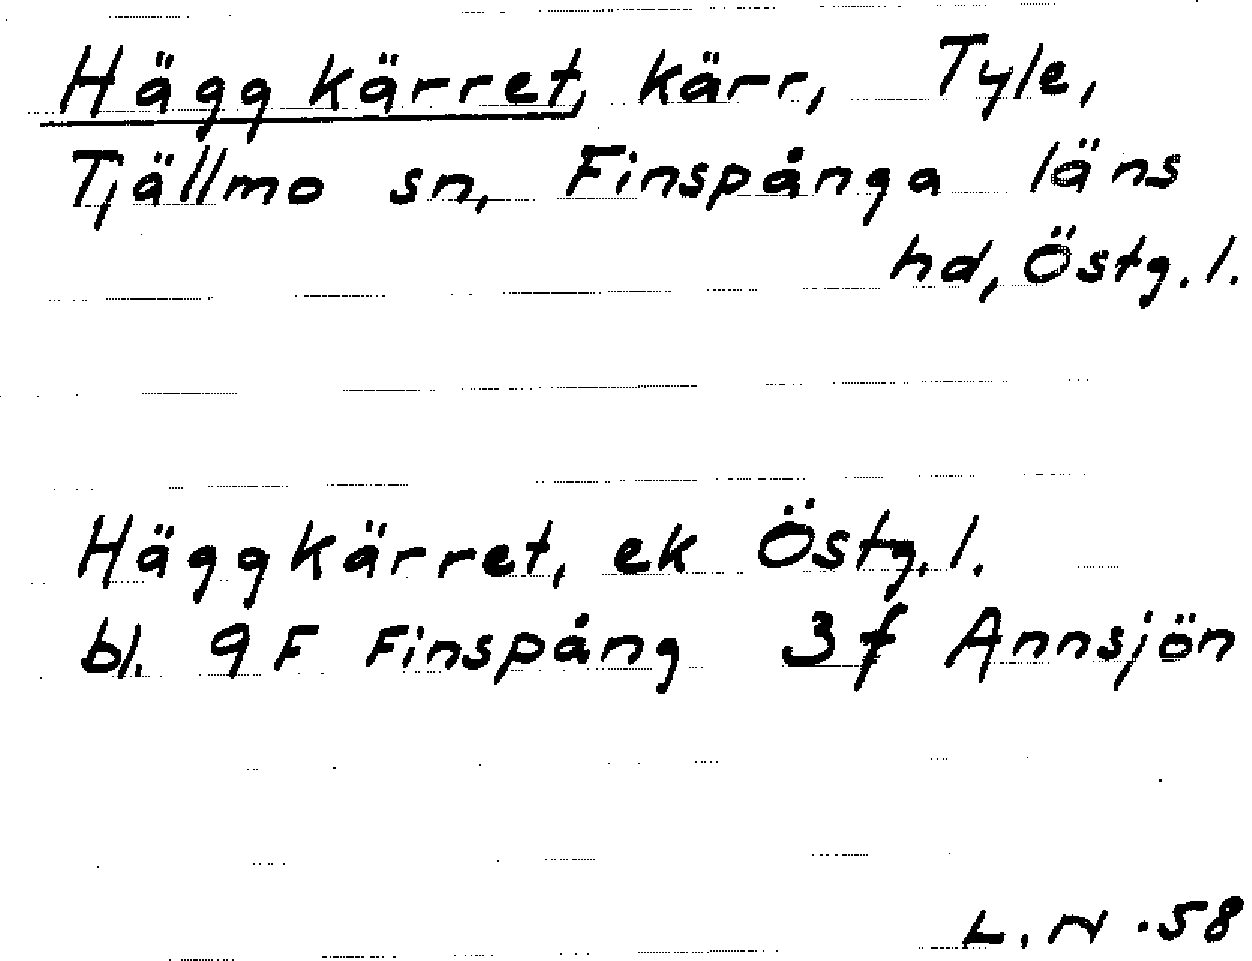 Häggkärret, kärr, Tyle,
Tjällmo sn, Finspånga läns
hd, Östg. l.
Häggkärret, ek Östg. l.
bl. 9F Finspång 3f Annsjön
L. N. 58